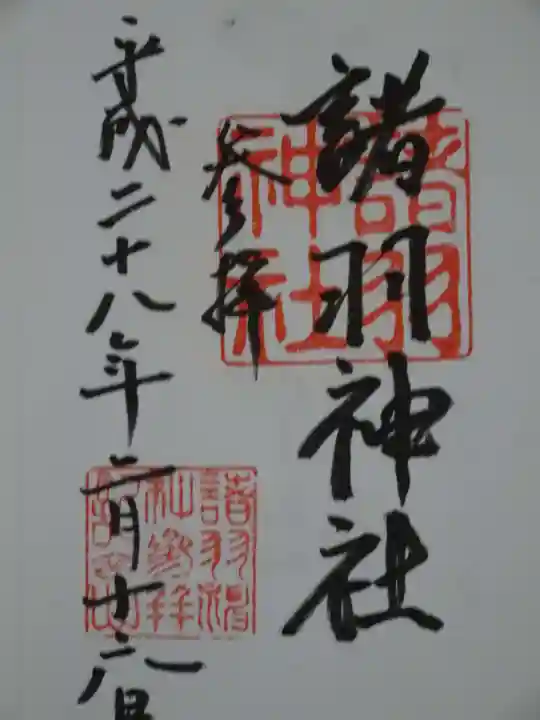 諸羽神社
参拝
平成二十八年二月十六日
諸羽
神社
諸羽神
社参拝